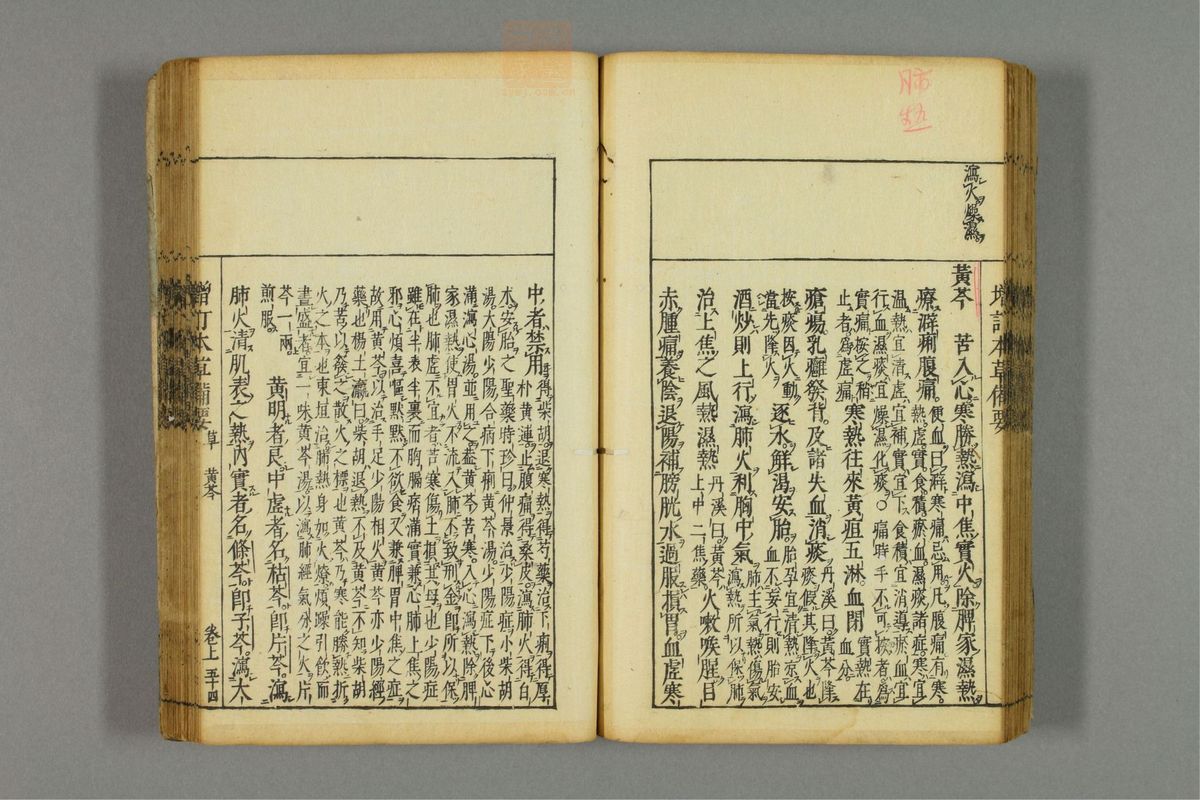 肺
熱
瀉火燥濕
增訂本草備要
黃芩　苦入心寒勝熱瀉中焦實火除脾家濕熱
療澼痢腹痛便血曰澼寒痛忌用凡腹痛有寒
熱虛實食積瘀血濕痰諸症寒宜
溫熱宜清虛宜補實宜下食積宜消導瘀血宜
行血濕痰宜燥濕化痰○痛時手不可按者爲
實痛按之稍
止者爲虛痛寒熱往來黃疸五淋血閉實熱在
血分
瘡瘍乳癰發背及諸失血消痰丹溪曰黃芩降
痰假其降火也
按痰因火動
當先降火逐水解渴安胎胎孕宜清熱凉血
血不妄行則胎安
酒炒則上行瀉肺火利胸中氣肺主氣熱傷氣
瀉熱所以保肺
治上焦之風熱濕熱丹溪曰黃芩
上中二焦藥火嗽喉腥目
赤腫痛養陰退陽補膀胱水過服損胃血虛寒
中者禁用得柴胡退寒熱得芍藥治下痢得厚
朴黃連止腹痛得桑皮瀉肺火得白
朮安胎之聖藥時珍曰仲景治少陽症小柴胡
湯太陽少陽合病下痢黃芩湯少陽症下後心
滿瀉心湯並用之蓋黃芩苦寒入心瀉熱除脾
家濕熱使胃火不流入肺不致刑金即所以保
肺也肺虛不宜者苦寒傷土損其母也少陽症
雖在半表半裏而胸膈痞滿實兼心肺上焦之
邪心煩喜嘔默默不欲飲食又兼脾胃中焦之症
故用黃芩以治手足少陽相火黃芩亦少陽經
藥也楊士瀛曰柴胡退熱不及黃芩不知柴胡
乃苦以發之散火之標也黃芩乃寒能勝熱折
火之本也東垣治肺熱身如火燎煩躁引飲而
晝盛者宜一味黃芩湯以瀉肺經氣分之火片
芩一兩
煎服黃明者良中虛者名枯芩即片芩瀉
肺火清肌表之熱內實者名條芩即子芩瀉大
增訂本草備要
草　黃芩
卷上　五十四